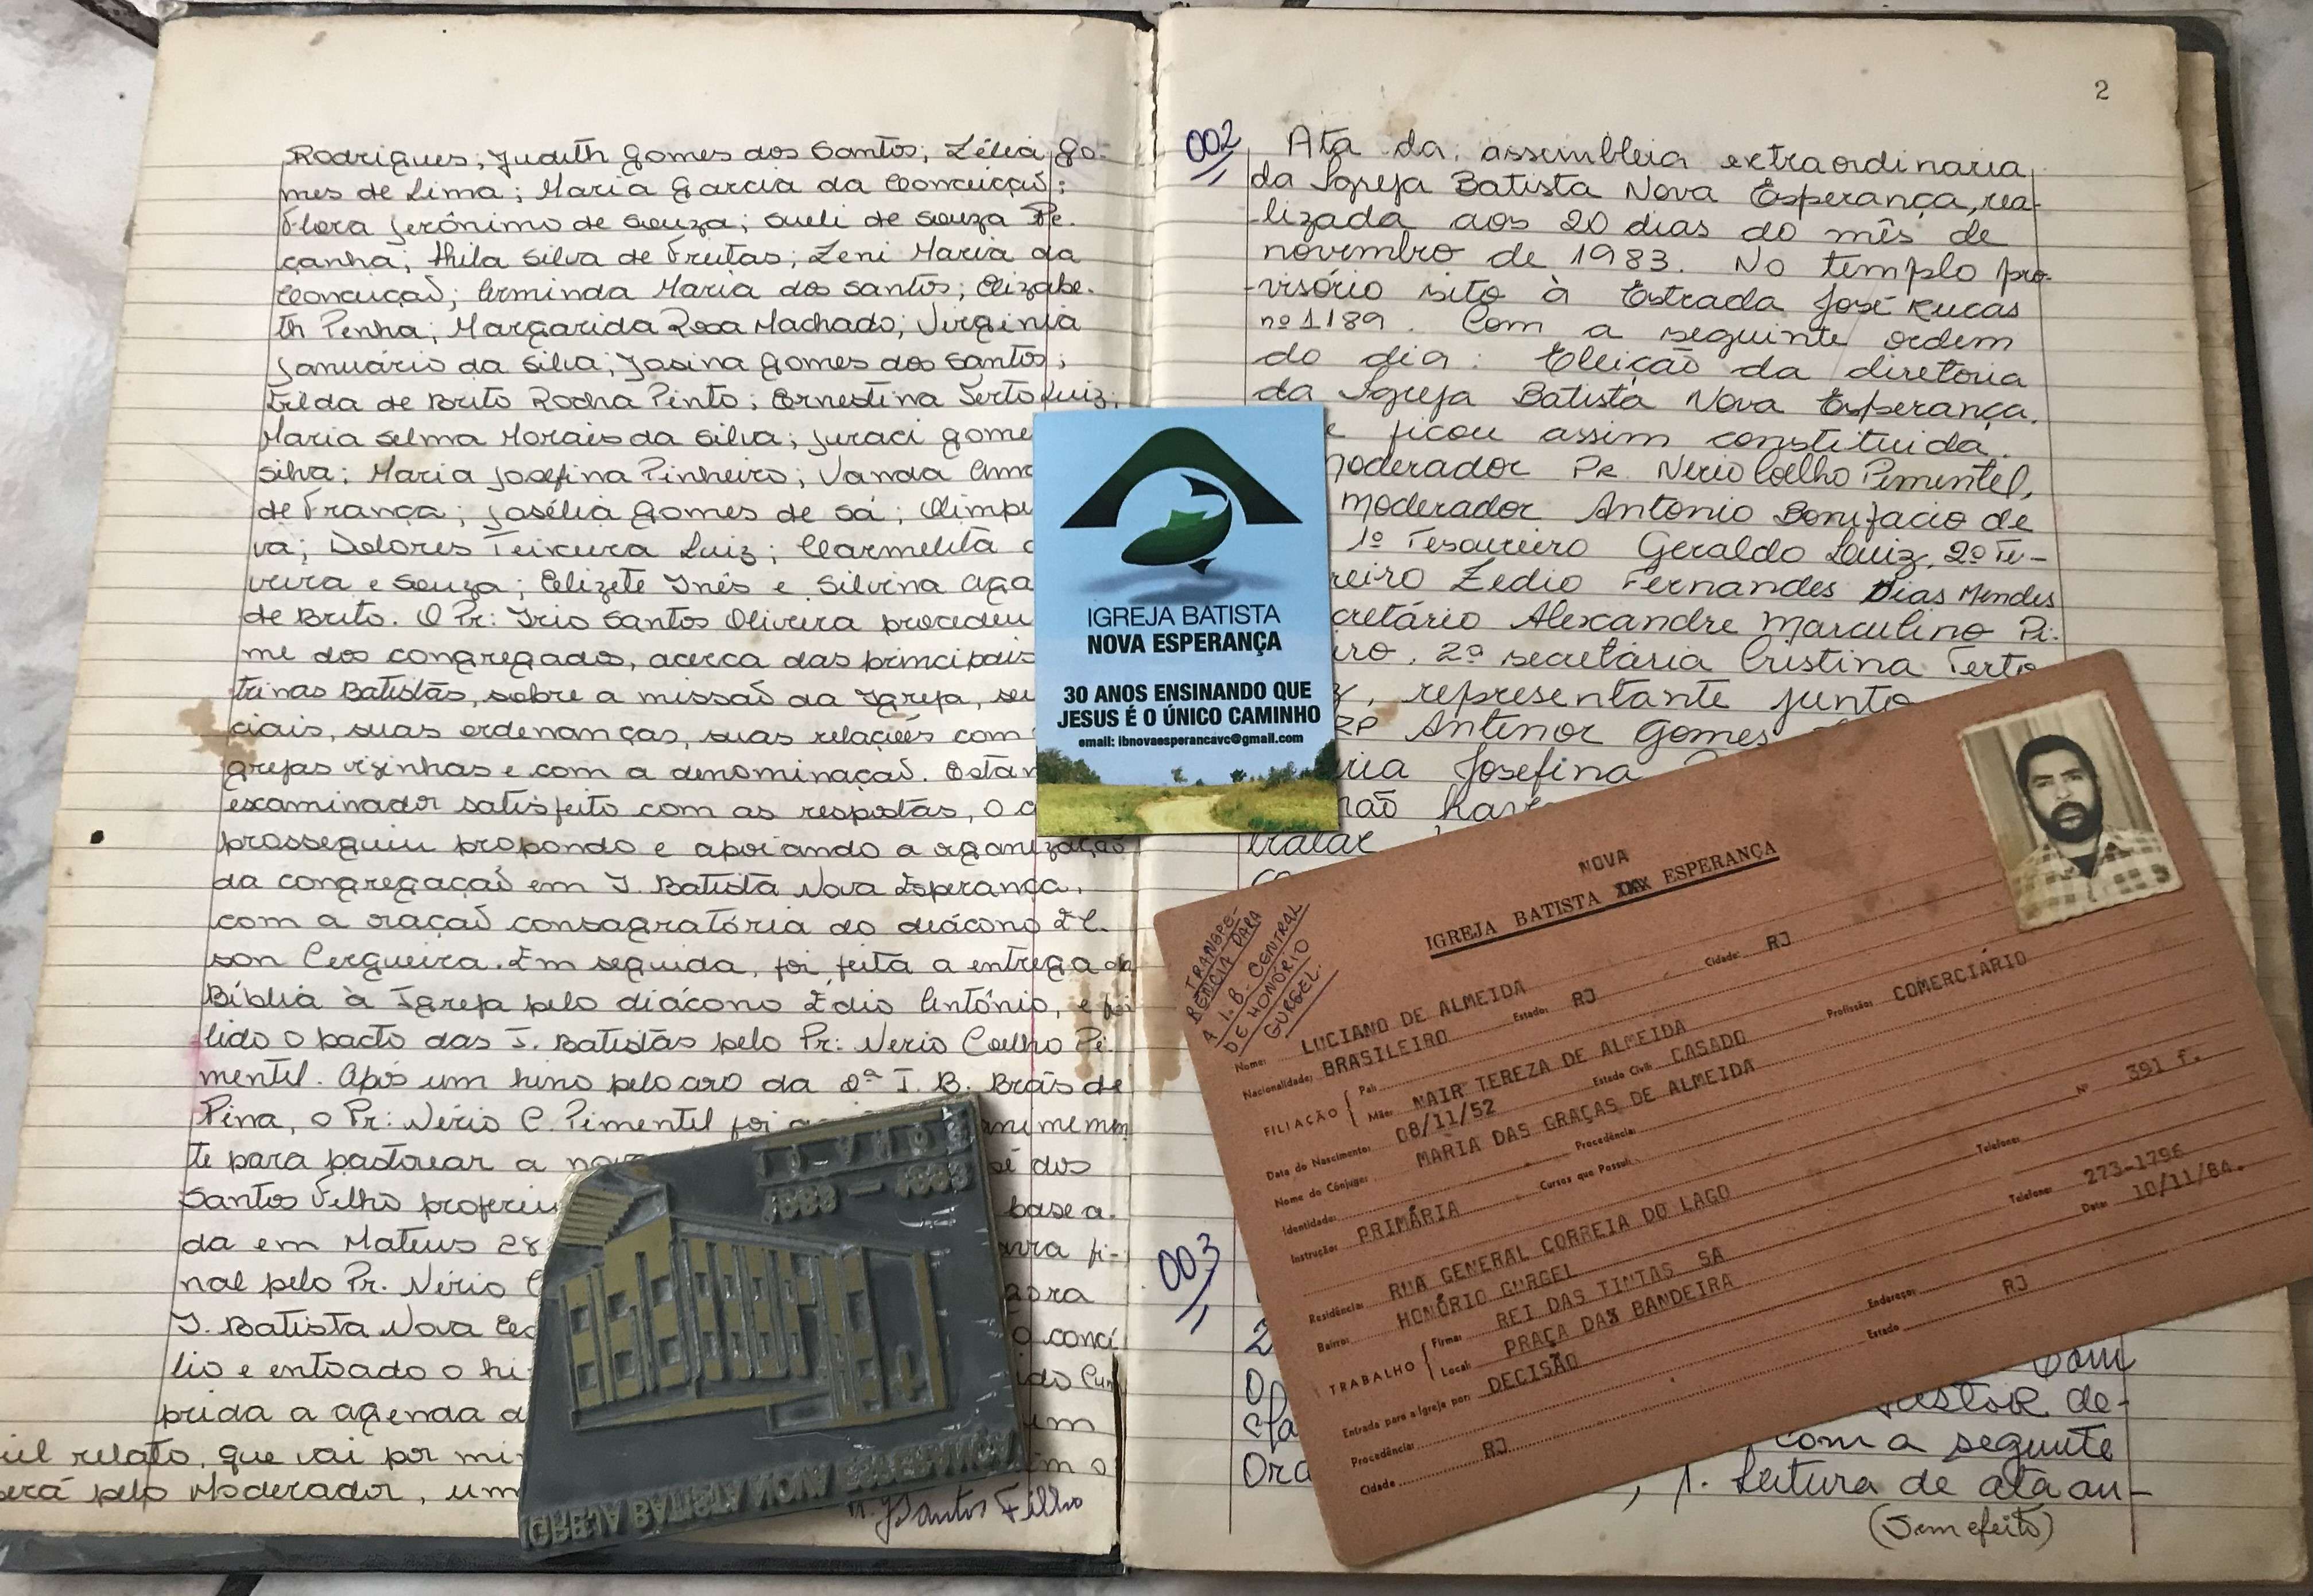 Rodrigues; Judith Gomes dos Santos; Zélia Go-
mes de Lima; Maria Garcia da Conceição;
Flora Jerônimo de Souza; Sueli de Souza Pe-
çanha; Thila Silva de Freitas; Zeni Maria da
Conceição; Arminda Maria dos Santos; Elizabe-
th Penha; Margarida Rosa Machado; Virginia
Januário da Silva; Josina Gomes dos Santos;
Zilda de Brito Rocha Pinto; Ernestina Terto Luiz;
Maria Selma Morais da Silva; Juraci Gome
Silva; Maria Josefina Pinheiro; Vanda
de França; Josélia Gomes de Sá; Olimpi
va; Dolores Teixeira Luiz; Carmelita
veira e Souza; Elizete Inês e Silvina
de Brito. O Pr: Irio Santos Oliveira procedeu
me dos congregados, acerca das principais
trinas Batistas, sobre a missão da Igreja, seu
ciais, suas ordenanças, suas relações com
grejas vizinhas e com a denominação. Estan
examinador satisfeito com as respostas, o c
prosseguiu propondo e apoiando a organização
da congregação em I. Batista Nova Esperança,
com a oração consagratória do diácono El-
son Cerqueira. Em seguida, foi feita a entrega da
Bíblia à Igreja pelo diácono Édio Antônio, e foi
lido o pacto das I. Batistas pelo Pr: Nerio Coelho Pi-
mentel. Após um hino pelo coro da 2ª I. B. Brás de
Pina, o Pr: Nério C. Pimentel foi animemen
te para pastorear a no sé dos
Santos Filho proferiu basea-
da em Mateus 28 avra fi-
nal pelo Pr. Nério C agora
I. Batista Nova Es o conci
lio e entoado o hi ido Cum
prida a agenda d em
iel relato, que vai por mi em o
erá pelo Moderador, um
J Santos Filho
IGREJA BATISTA
NOVA ESPERANÇA
30 ANOS ENSINANDO QUE
JESUS É O ÚNICO CAMINHO
email: ibnovaesperancavc@gmail.com
10 ANOS
1983 — 1993
IGREJA BATISTA NOVA ESPERANÇA
2
002
Ata da assembleia extraordinaria
da Igreja Batista Nova Esperança, rea-
lizada aos 20 dias do mês de
novembro de 1983. No templo pro-
visório sito à Estrada José Rucas
nº 1189. Com a seguinte ordem
do dia: Eleição da diretoria
da Igreja Batista Nova Esperança.
e ficou assim constituida.
moderador Pr. Nerio Coelho Pimentel,
moderador Antonio Bonifacio de
1º Tesoureiro Geraldo Luiz, 2º Te-
reiro Zedio Fernandes Dias Mendes
cretário Alexandre Marculino Pi-
iro, 2ª secretária Cristina Terto
z, representante junto
ZP Antenor Gomes
ria Josefina
não hav
tratar
003
Com
Pastor de-
com a seguinte
Ord , 1. Leitura de ata an-
(Sem efeito)
TRANSFE-
RENCIA PARA
A I.B. CENTRAL
DE HONÓRIO
GURGEL.
NOVA
IGREJA BATISTA XXX ESPERANÇA
Nome: LUCIANO DE ALMEIDA
Cidade: RJ
Nacionalidade: BRASILEIRO Estado: RJ
FILIAÇÃO Pai:
Mãe: NAIR TEREZA DE ALMEIDA
Data do Nascimento: 08/11/52 Estado Civil: CASADO Profissão: COMERCIÁRIO
Nome do Cônjuge: MARIA DAS GRAÇAS DE ALMEIDA
Identidade: Procedência:
Instrução: PRIMÁRIA Cursos que Possui:
Residência: RUA GENERAL CORREIA DO LAGO Nº 391 f.
Bairro: HONÓRIO GURGEL Telefone:
TRABALHO Firma: REI DAS TINTAS SA Telefone: 273-1796
Local: PRAÇA DAX BANDEIRA
Entrada para a Igreja por: DECISÃO Data: 10/11/84.
Procedência: Endereço:
Cidade RJ Estado RJ